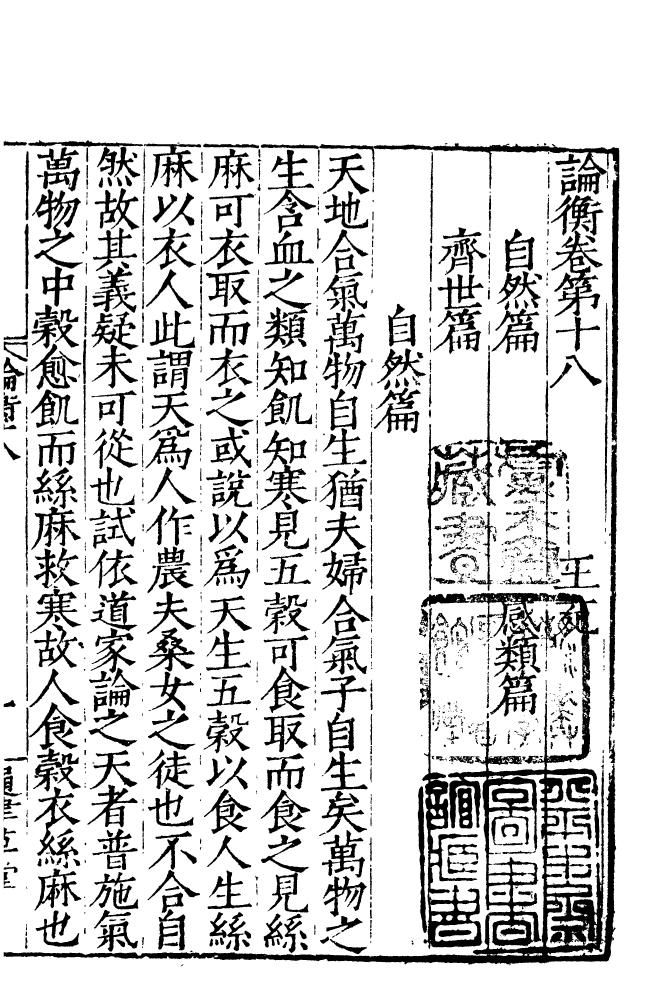 論衡卷第十八
王充
自然篇 感類篇
齊世篇
自然篇
天地合氣萬物自生猶夫婦合氣子自生矣萬物之
生含血之類知飢知寒見五穀可食取而食之見絲
麻可衣取而衣之或說以爲天生五穀以食人生絲
麻以衣人此謂天爲人作農夫桑女之徒也不合自
然故其義疑未可從也試依道家論之天者普施氣
萬物之中穀愈飢而絲麻救寒故人食穀衣絲麻也